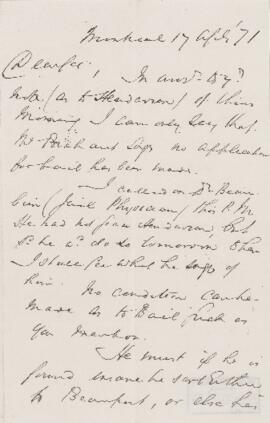 Montreal 17 April '71
Dear Sir, In ansr. to yr.
note (as to Henderson) of this
Morning I can only say that
Mr says no application
for bail has been made.
I called on Dr Beau
bien (Jail Physician) this P.M.
He had not seen Henderson but
sd he wd. do so tomorrow when
I shall see what he says of
him. No condition can be
made as to Bail such as
you mention.
He must if he is
found insane be sent Either
to Beauport, or else his